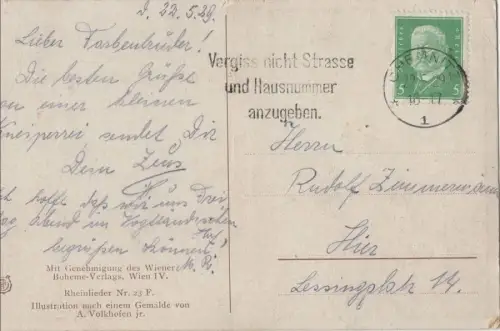 d. 22.5.29.
Lieber Farbenbruder!
Die besten Grüße
von einer kleinen
Kneiperei sendet Dir
Dein Zeus
hofft daß wir uns Frei
tag abend im Vogtländischen
Hof
begrüßen können!
Mit Genehmigung des Wiener
Boheme-Verlags, Wien IV.
Rheinlieder Nr. 23 F.
Illustration nach einem Gemälde von
A. Volkhofen jr.
Vergiss nicht Strasse
und Hausnummer
anzugeben.
5 5
1
Herrn
Rudolf Zimmermann
Hier
Lessingplatz 14.